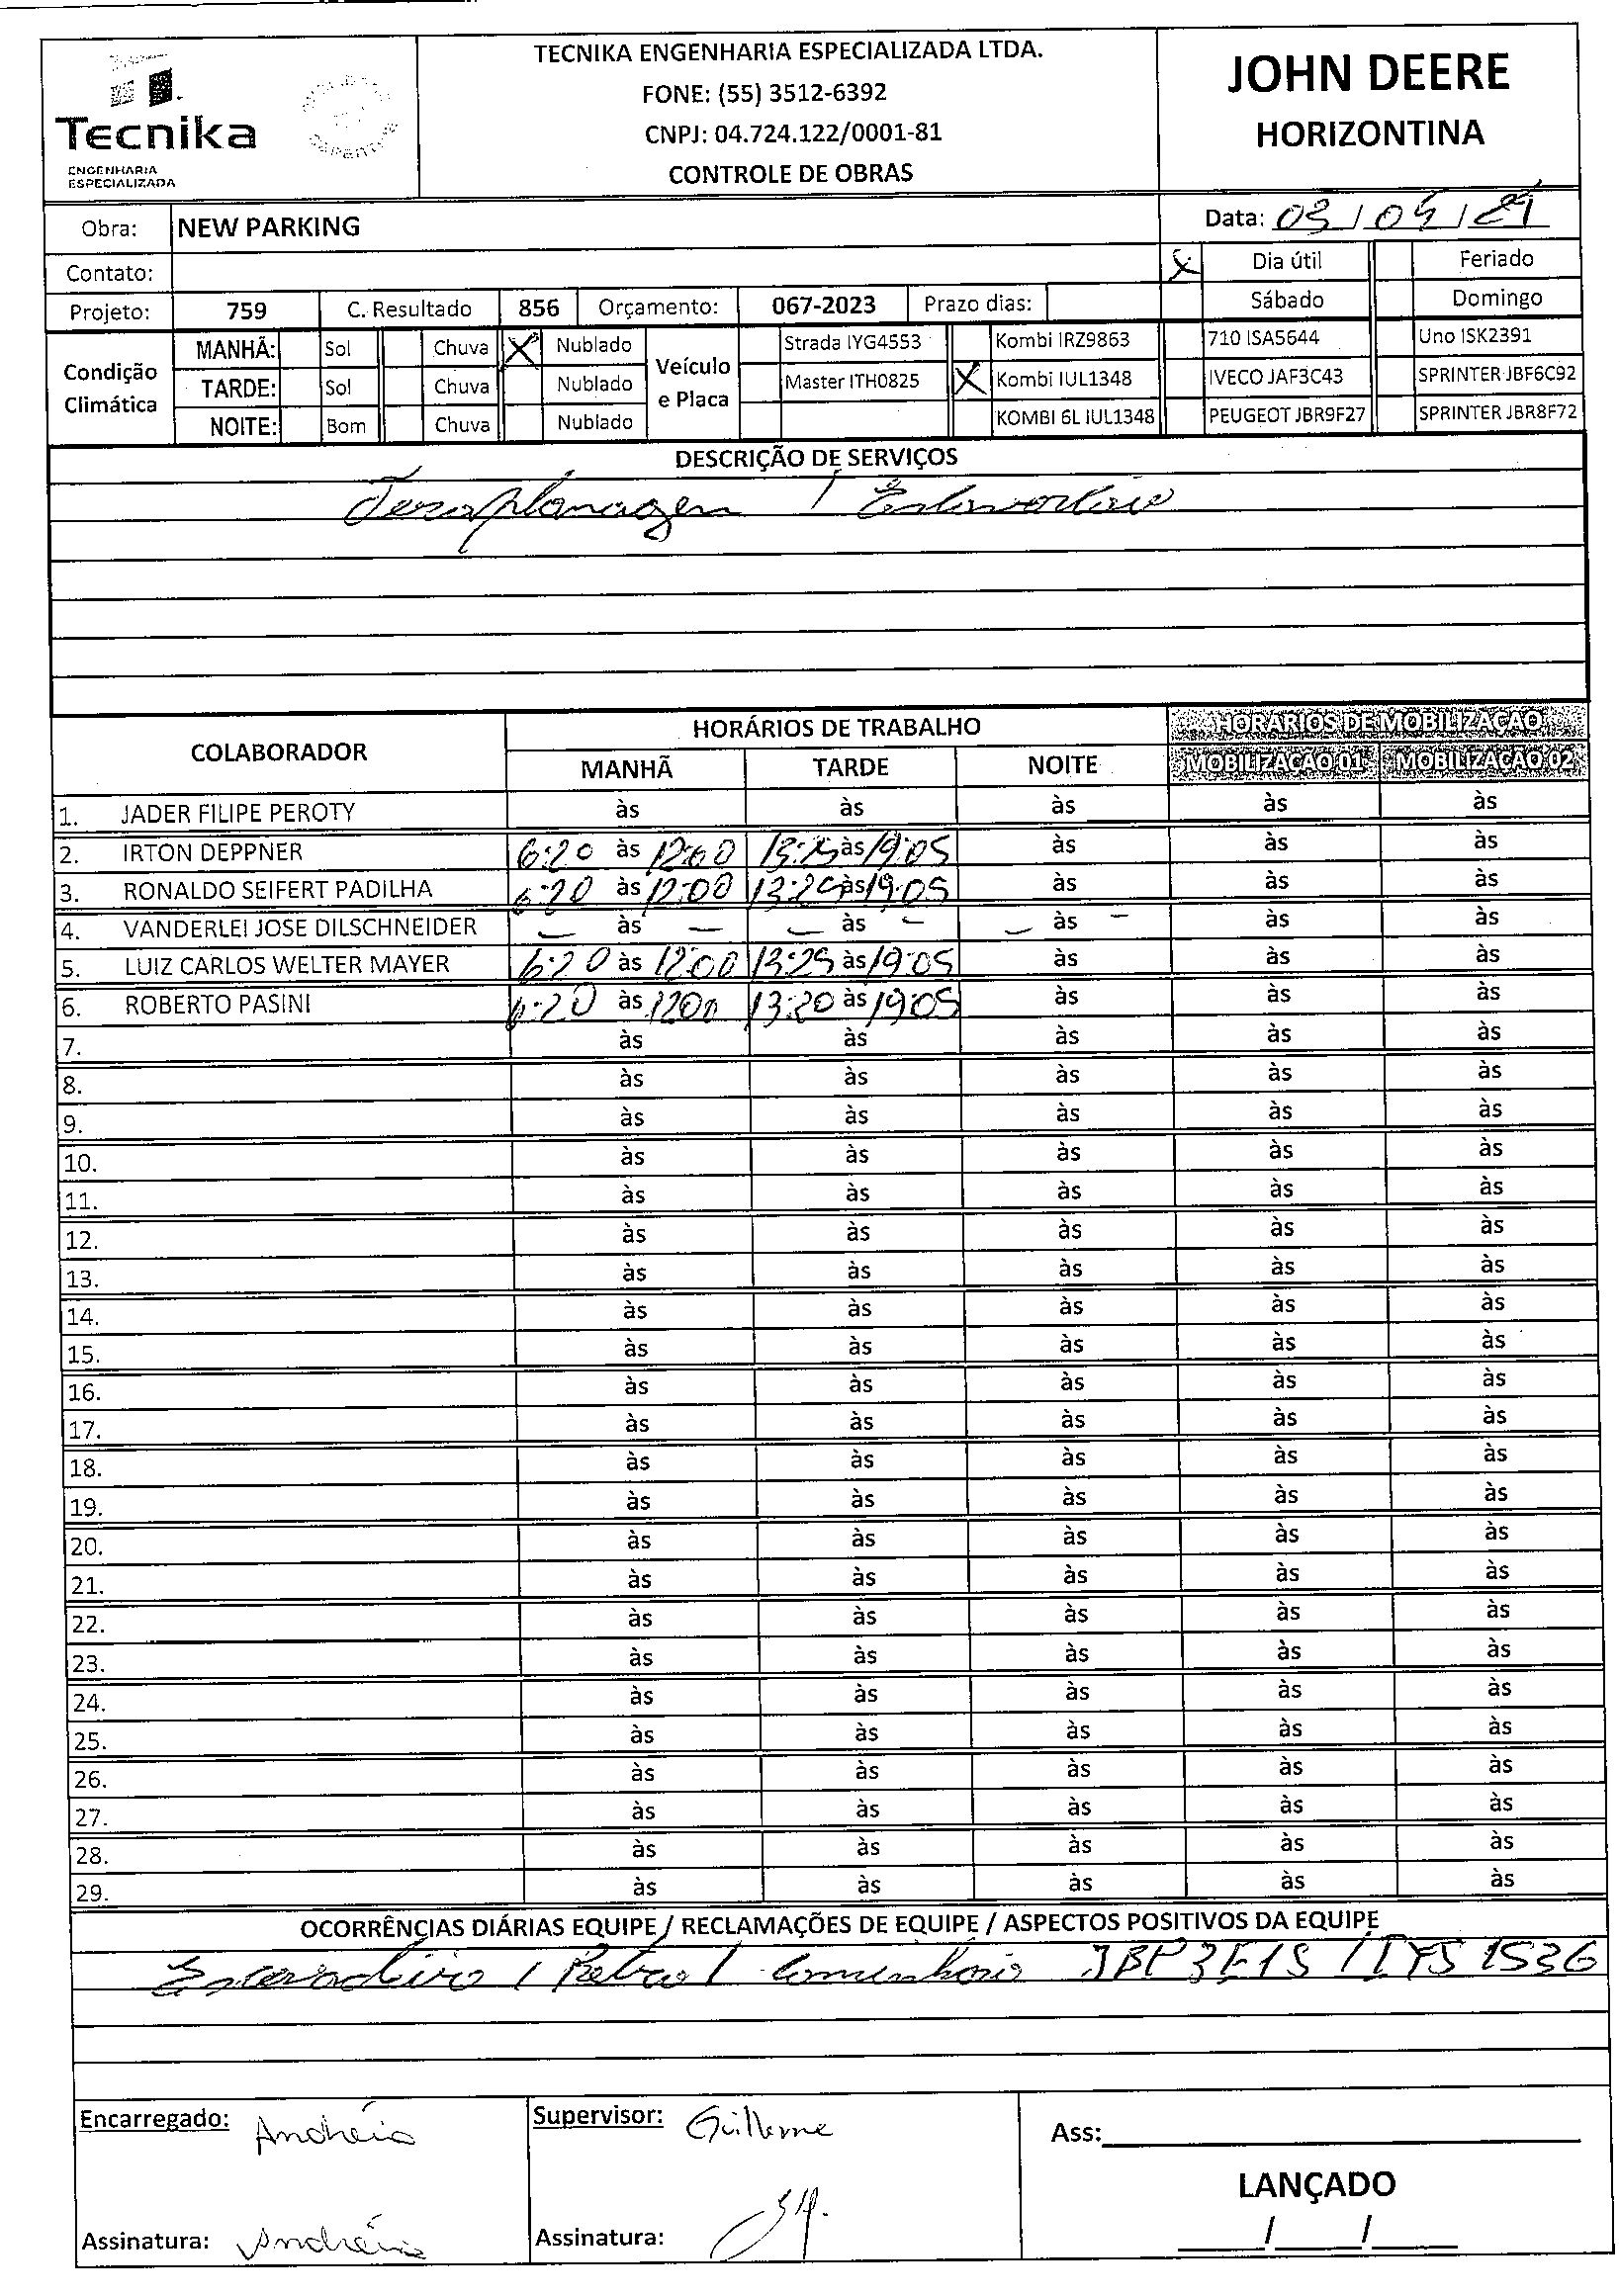 TECNIKA ENGENHARIA ESPECIALIZADA LTDA.
FONE: (55) 3512-6392
CNPJ: 04.724.122/0001-81
CONTROLE DE OBRAS
Tecnika
ENGENHARIA
ESPECIALIZADA
JOHN DEERE
HORIZONTINA
Obra: NEW PARKING
Data: 03/04/24
Contato:
Dia útil Feriado
Projeto: 759 C. Resultado 856 Orçamento: 067-2023 Prazo dias: Sábado Domingo
Condição Climática
MANHÃ: Sol Chuva X Nublado
TARDE: Sol Chuva Nublado
NOITE: Bom Chuva Nublado
Veículo e Placa
Strada IYG4553 Kombi IRZ9863 710 ISA5644 Uno ISK2391
Master ITH0825 X Kombi IUL1348 IVECO JAF3C43 SPRINTER JBF6C92
KOMBI 6L IUL1348 PEUGEOT JBR9F27 SPRINTER JBR8F72
DESCRIÇÃO DE SERVIÇOS
Terraplanagem /
COLABORADOR HORÁRIOS DE TRABALHO HORÁRIOS DE MOBILIZAÇÃO
MANHÃ TARDE NOITE MOBILIZAÇÃO 01 MOBILIZAÇÃO 02
1. JADER FILIPE PEROTY às às às às às
2. IRTON DEPPNER 6:20 às 12:00 13:25 às 19:05 às às às
3. RONALDO SEIFERT PADILHA 6:20 às 12:00 13:20 às 19:05 às às às
4. VANDERLEI JOSE DILSCHNEIDER — às — — às — — às — às às
5. LUIZ CARLOS WELTER MAYER 6:20 às 12:00 13:25 às 19:05 às às às
6. ROBERTO PASINI 6:20 às 1200 13:20 às 19:05 às às às
7. às às às às às
8. às às às às às
9. às às às às às
10. às às às às às
11. às às às às às
12. às às às às às
13. às às às às às
14. às às às às às
15. às às às às às
16. às às às às às
17. às às às às às
18. às às às às às
19. às às às às às
20. às às às às às
21. às às às às às
22. às às às às às
23. às às às às às
24. às às às às às
25. às às às às às
26. às às às às às
27. às às às às às
28. às às às às às
29. às às às às às
OCORRÊNCIAS DIÁRIAS EQUIPE / RECLAMAÇÕES DE EQUIPE / ASPECTOS POSITIVOS DA EQUIPE
/ Retro / JBP3E15 / IYS 1536
Encarregado: Andréia Supervisor: Guilherme Ass:
LANÇADO
Assinatura: Andréia Assinatura: